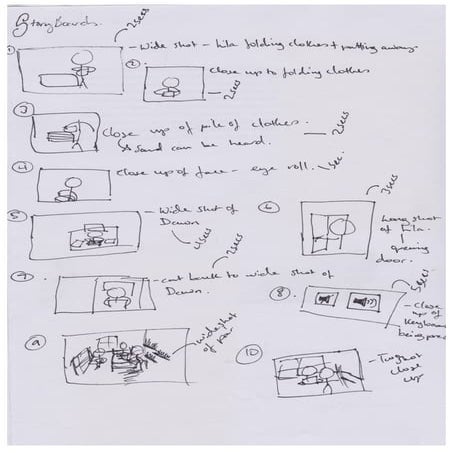 Story Boards.
2secs
① - Wide shot - Lila folding clothes + putting away.
② Close up to folding clothes
2secs
③ Close up of pile of clothes. - 2secs
Sand can be heard.
④ Close up of face - eye roll. 1sec.
⑤ - Wide shot of
Dawn
4secs
⑥ 3secs
Long shot
of Lila.
opening
door.
⑦ 2secs
- cut back to wide shot of
Dawn.
⑧ 5secs
- Close
up of
Keyboard
being
⑨ wideshot
of
⑩ - Two shot
close
up